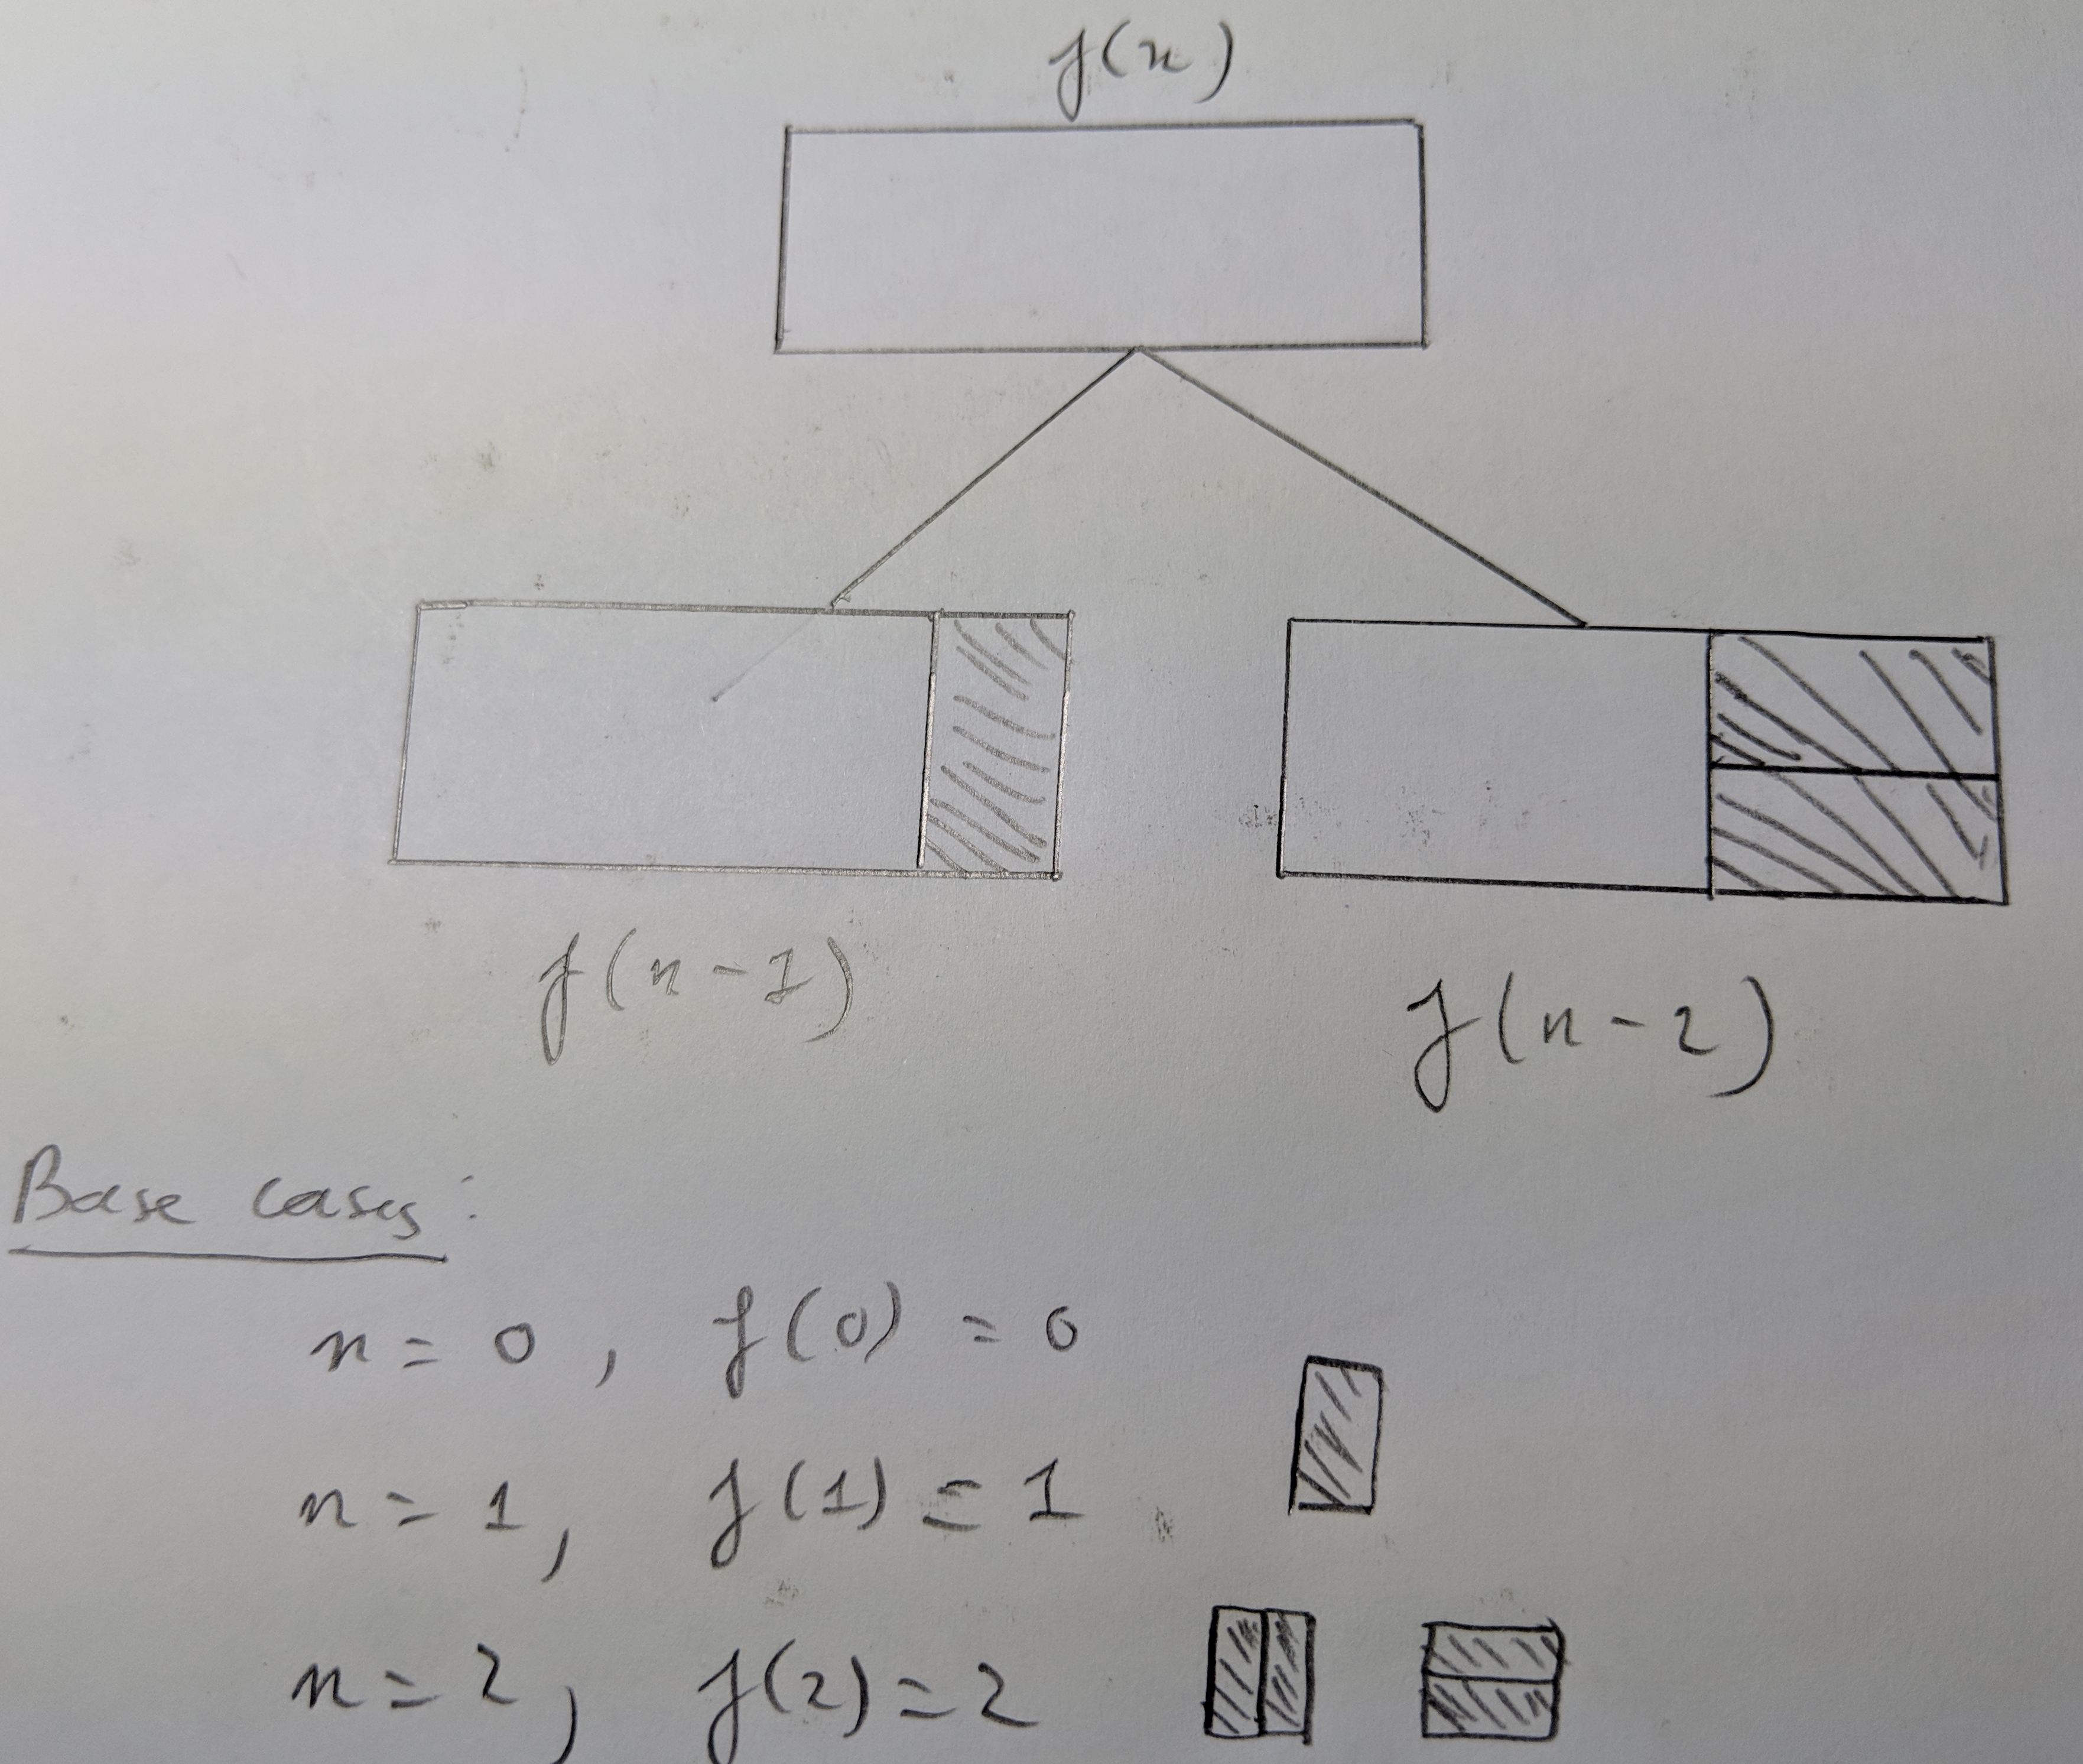 f(n)
f(n-1)
f(n-2)
Base cases:
n=0, f(0) = 0
n=1, f(1) = 1
n=2, f(2)=2